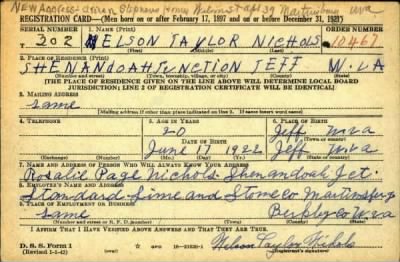 NEW Address
REGISTRATION CARD—(Men born on or after February 17, 1897 and on or before December 31, 1921)
SERIAL NUMBER
202
NELSON TAYLOR NICHOLS
ORDER NUMBER
10467
2. PLACE OF RESIDENCE (Print)
SHENANDOAH JUNCTION JEFF W.VA
(Number and street) (Town, township, village, or city) (County) (State)
[THE PLACE OF RESIDENCE GIVEN ON THE LINE ABOVE WILL DETERMINE LOCAL BOARD
JURISDICTION; LINE 2 OF REGISTRATION CERTIFICATE WILL BE IDENTICAL]
3. MAILING ADDRESS
Same
[Mailing address if other than place indicated on line 2. If same insert word same]
4. TELEPHONE
5. AGE IN YEARS
20
6. PLACE OF BIRTH
Jeff W va
DATE OF BIRTH
June 17 1922
Jeff W va
(Exchange) (Number) (Mo.) (Day) (Yr.) (State or country)
7. NAME AND ADDRESS OF PERSON WHO WILL ALWAYS KNOW YOUR ADDRESS
Rosalie Page Nichols. Shenandoah Jct.
8. EMPLOYER'S NAME AND ADDRESS
Standard Lime and Stone Co Martinsburg
9. PLACE OF EMPLOYMENT OR BUSINESS
same Berkley co W.va
(Number and street or R. F. D. number) (Town) (County) (State)
I AFFIRM THAT I HAVE VERIFIED ABOVE ANSWERS AND THAT THEY ARE TRUE.
D. S. S. Form 1
(Revised 1-1-42)
Nelson Taylor Nichols
(Registrant's signature)